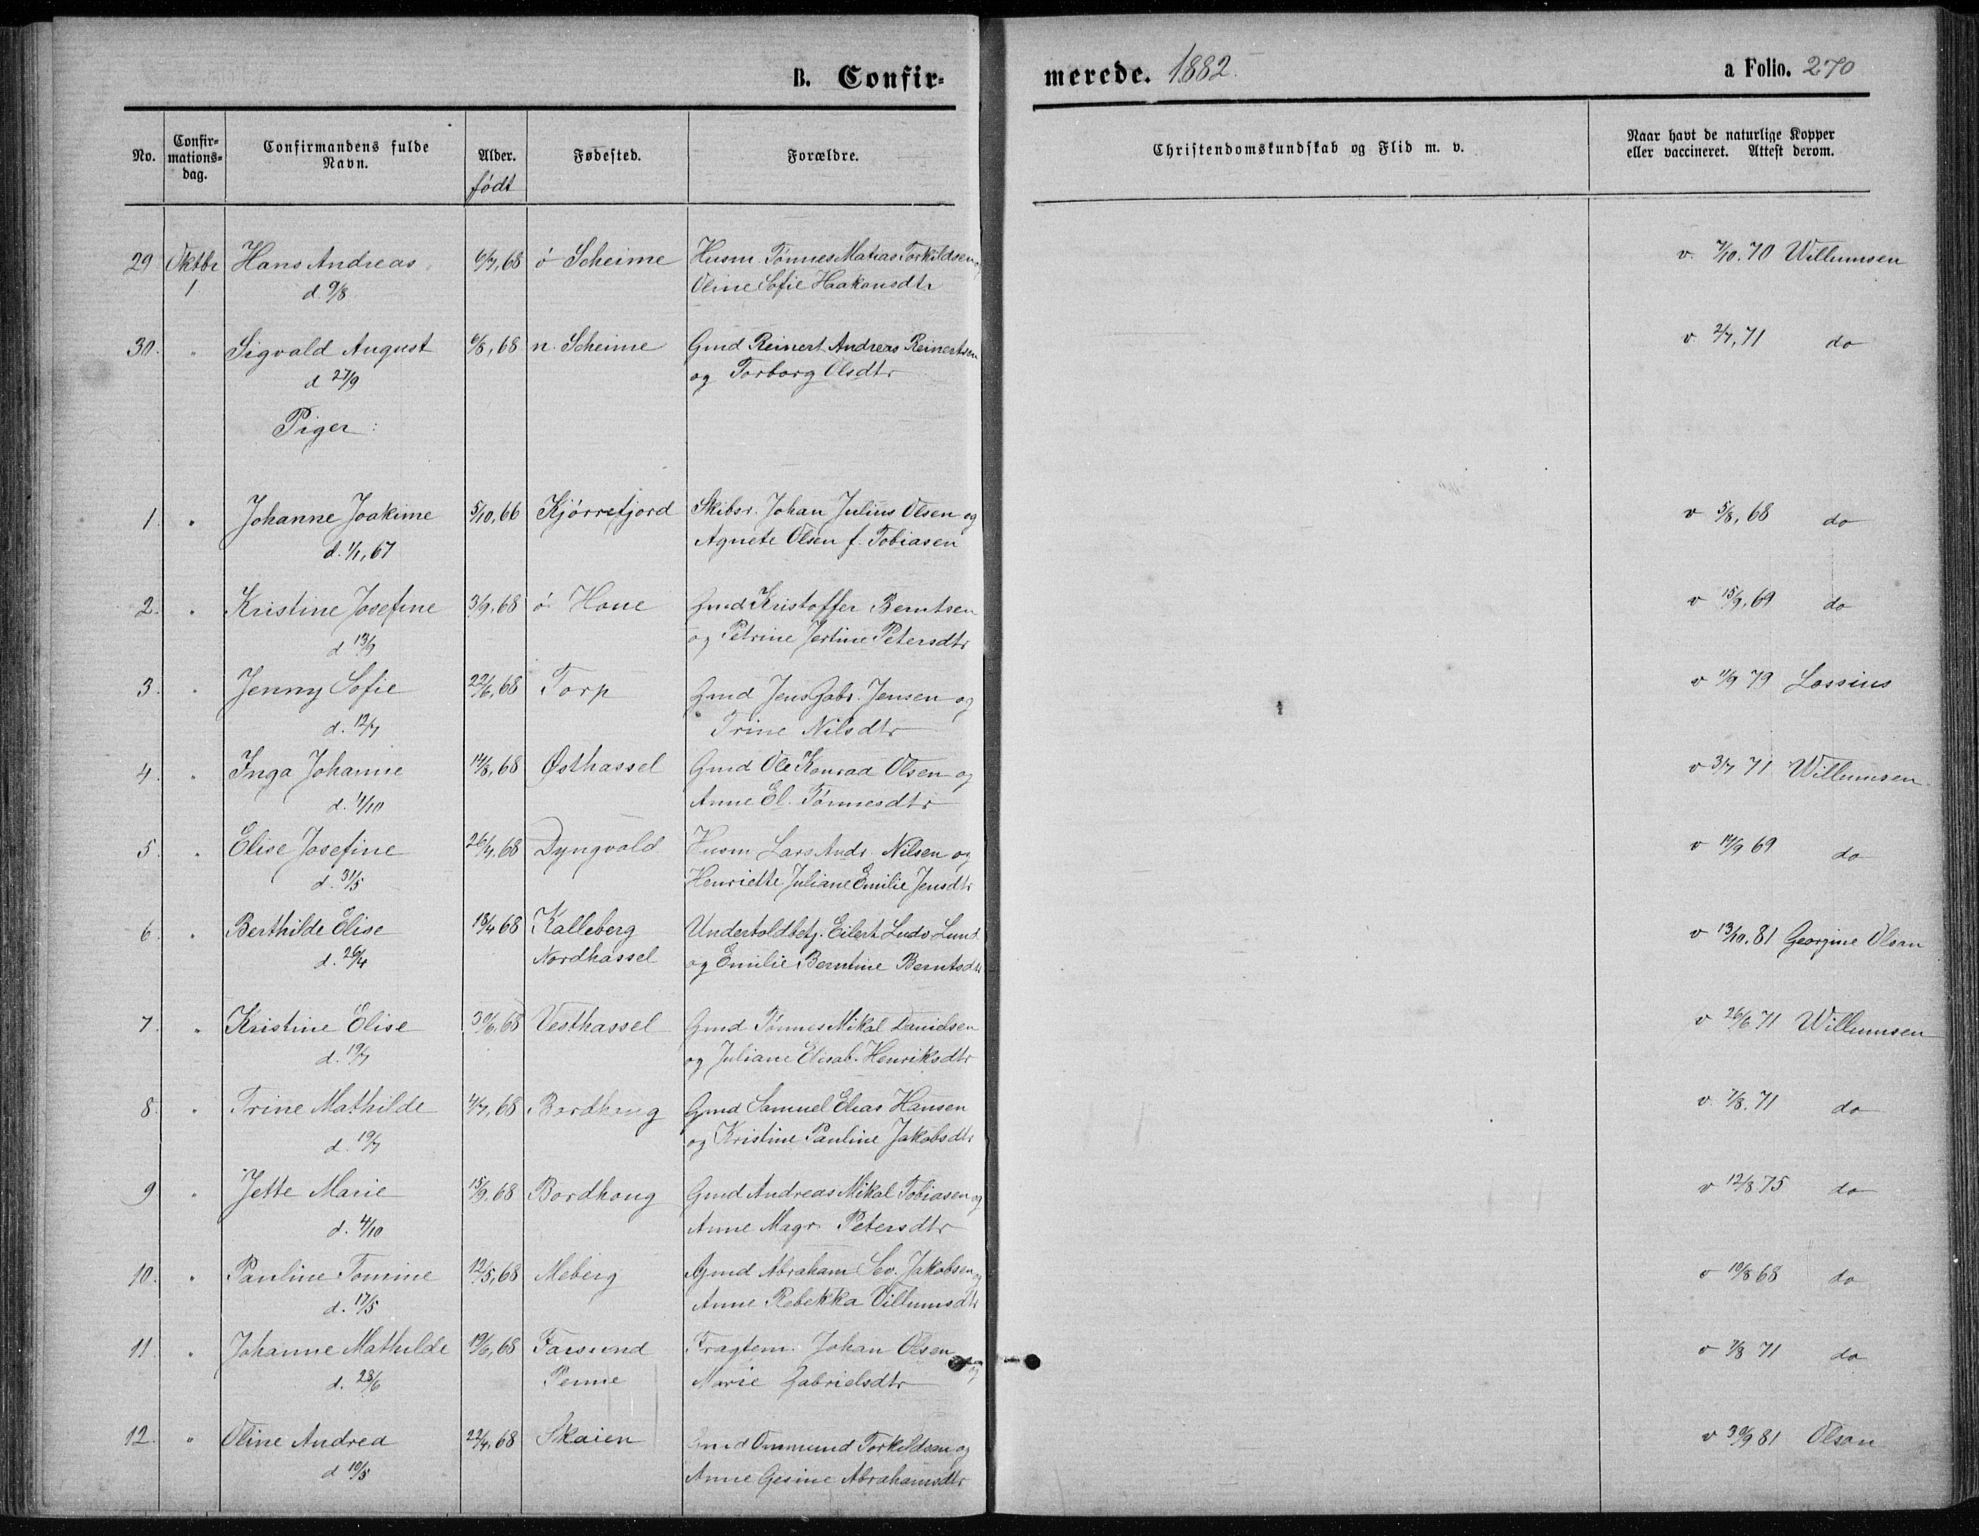 B. Confir- merede. 1882. a Folio. 270
No.
Confir-
mations-
dag.
Confirmandens fulde
Navn.
Alder.
født
Fødested.
Forældre.
Christendomskundskab og Flid m. v.
Naar havt de naturlige Kopper
eller vaccineret. Attest derom.
29 Oktbr Hans Andreas 6/7, 68 ø Scheime Husm. Tønnes Matias Torkildsen v. 7/10. 70 Willumsen
1 d. 9/8 Oline Sofie Haakonsdtr
30. " Sigvald August 6/8, 68 n. Scheime Gmd Reinert Andreas Reinertsen v 2/7, 71 do
d 27/9 og Torborg Olsdtr
Piger:
1. " Johanne Joakime 5/10, 66 Kjørrefjord Skibsr. Johan Julius Olsen og v 5/8, 68 do
d. 1/1, 67 Agnete Olsen f. Tobiasen
2. " Kristine Josefine 3/9, 68 ø Hone Gmd Kristoffer Berntsen v 15/9, 69 do
d 13/9 og Petrine Jertine Petersdtr
3. " Jenny Sofie 22/6, 68 Torp Gmd Jens Gabr. Jensen og v 11/9 79 Lossius
d. 12/7 Trine Nilsdtr
4. " Inga Johanne 14/8, 68 Østhassel Gmd Ole Konrad Olsen og v 3/7 71 Willumsen
d. 4/10 Anne El. Tønnesdtr
5. " Elise Josefine 26/4, 68 Dyngvold Husm Lars Andr. Nilsen og v 14/9 69 do
d. 31/5 Henriette Juliane Emilie Jensdtr
6. " Berthilde Elise 18/4 68 Kalleberg Undertoldbetj. Eilert Ludv Lund v 13/10. 81 Georgine Olsen
d. 26/4 Nordhassel og Emilie Berntine Berntsdtr
7. " Kristine Elise 30/6, 68 Vesthassel Gmd Tønnes Mikal Danielsen v 26/6 71 Willumsen
d. 19/7 og Juliane Elisab. Henriksdtr
8. " Trine Mathilde 4/7, 68 Bordhaug Gmd Samuel Elias Hansen v. 7/8. 71 do
d. 19/7 og Kristine Pauline Jakobsdtr
9 " Jette Marie 15/9, 68 Bordhaug Gmd Andreas Mikal Tobiasen og v 12/8 75 do
d. 4/10 Anne Magr. Petersdtr
10. " Pauline Tomine 12/5, 68 Meberg Gmd Abraham Sev. Jakobsen og v 10/8 68 do
d. 17/5 Anne Rebekka Villumsdtr
11 " Johanne Mathilde 19/6, 68 Farsund Fragtem. Johan Olsen og v 7/8 71 do
d. 28/6 Penne Marie Gabrielsdtr
12. " Oline Andrea 22/4, 68 Skaien Gmd Ommund Torkildsen og v 30/9 81 Olsen
d 10/5 Anne Gesine Abrahamsdtr